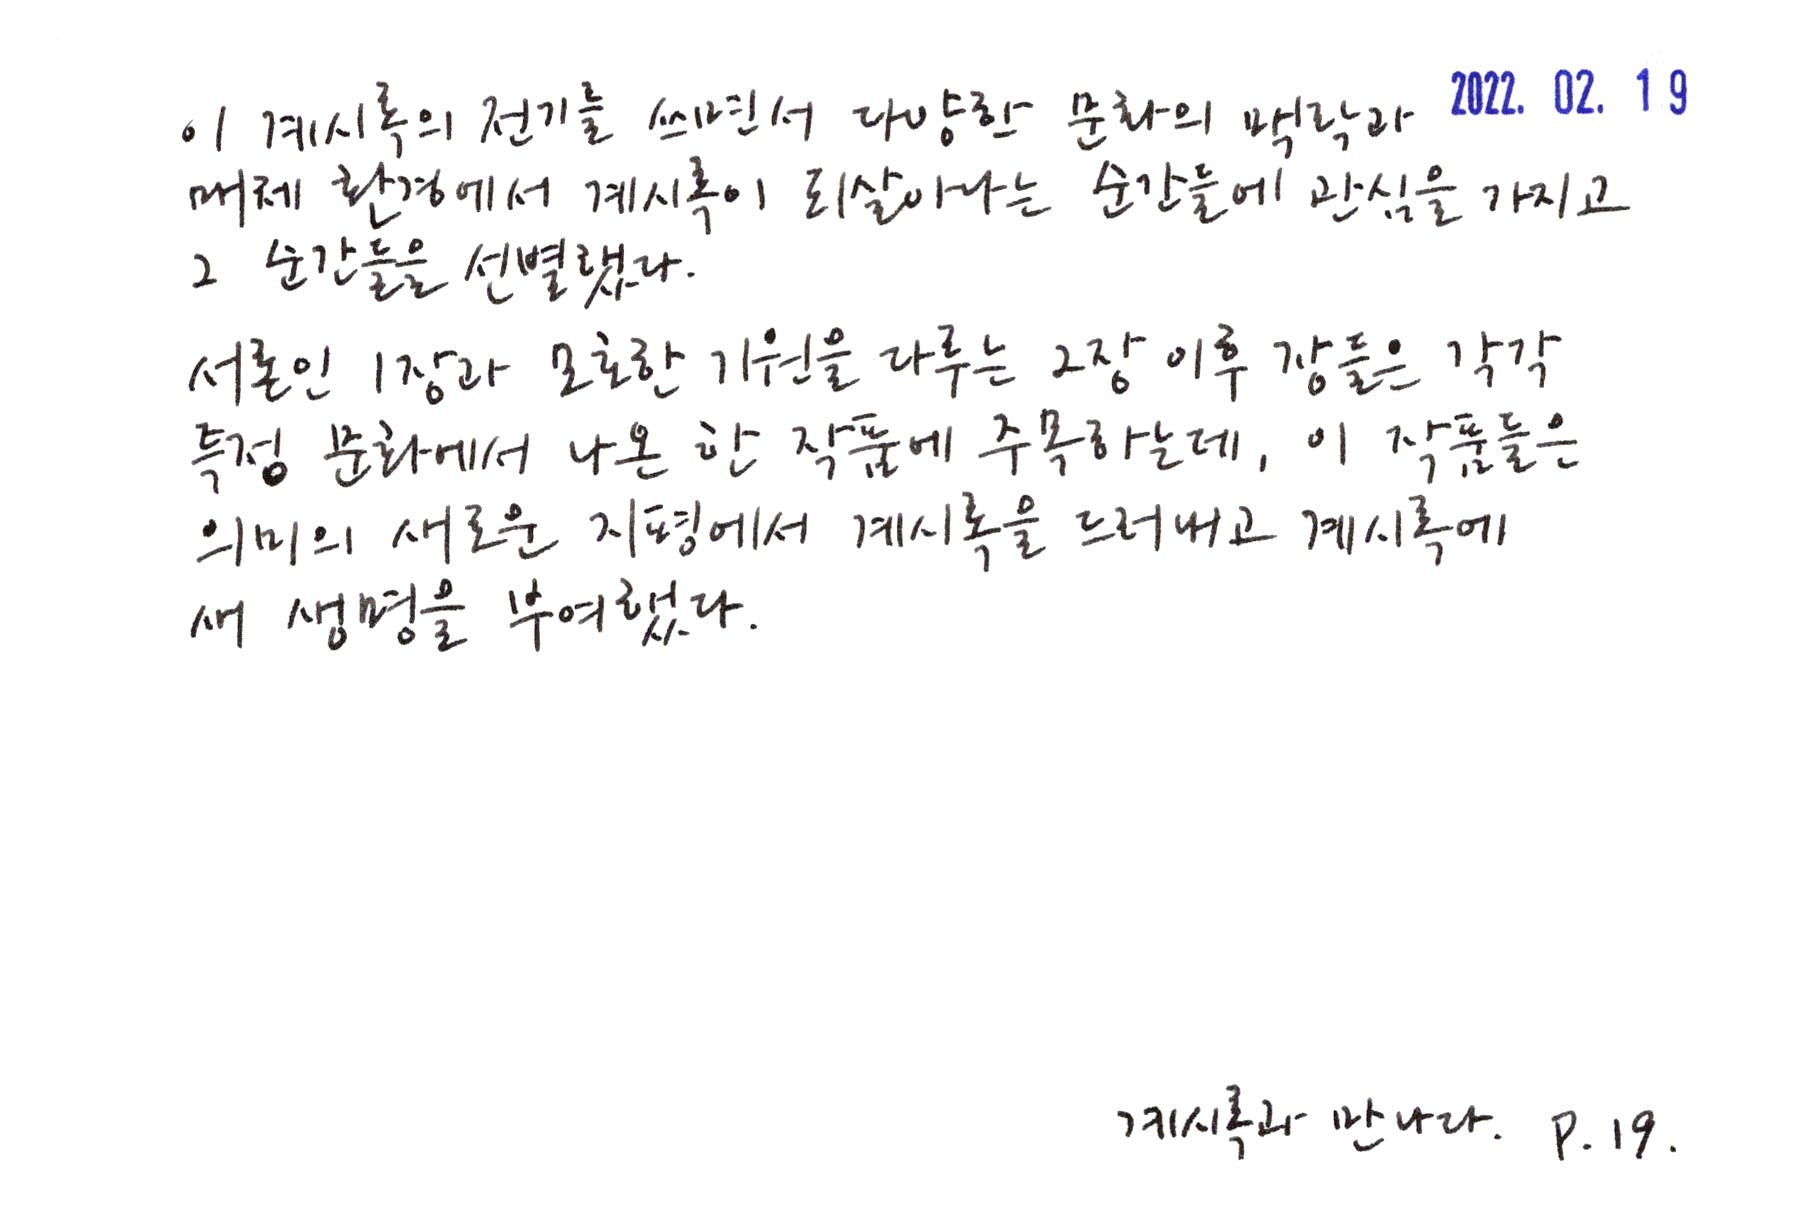 2022. 02. 19
이 계시록의 전기를 쓰면서 다양한 문화의 맥락과
매체 환경에서 계시록이 되살아나는 순간들에 관심을 가지고
그 순간들을 선별했다.
서론인 1장과 모호한 기원을 다루는 2장 이후 장들은 각각
특정 문화에서 나온 한 작품에 주목하는데, 이 작품들은
의미의 새로운 지평에서 계시록을 드러내고 계시록에
새 생명을 부여했다.
계시록과 만나다. P. 19.